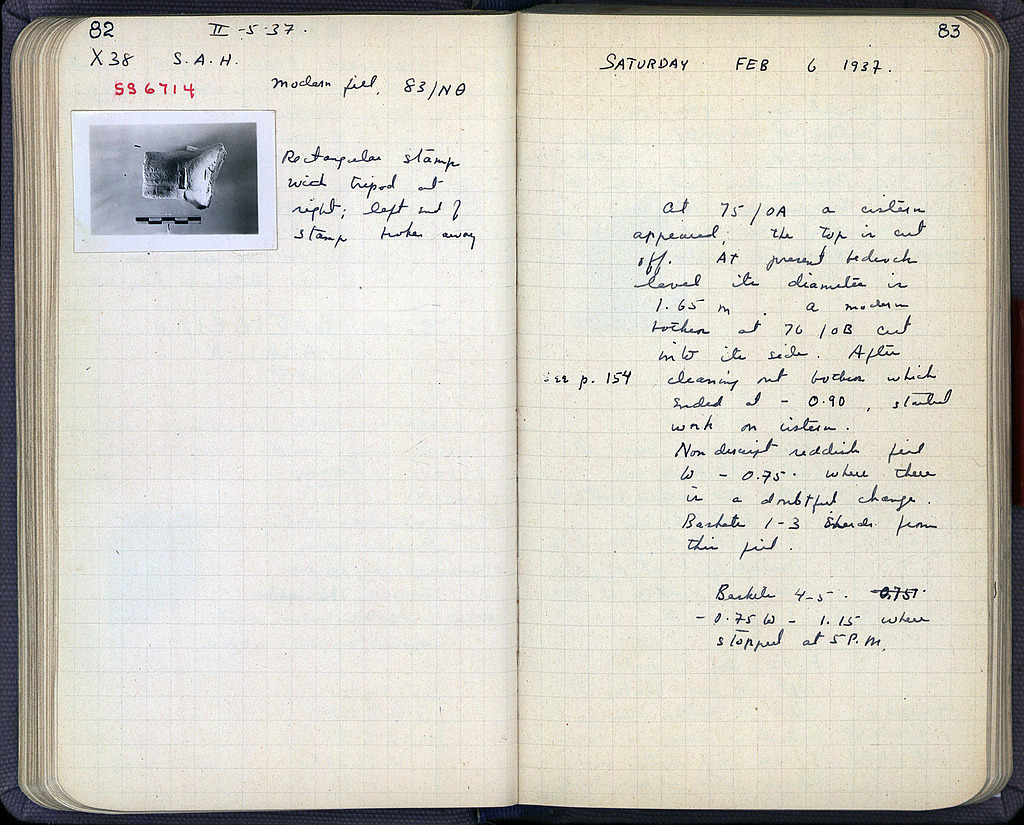 82
II-5-37.
X 38 S.A.H.
SS 6714
Modern fill, 83/NΘ
Rectangular stamp
with tripod at
right; left end of
stamp broken away
83
SATURDAY FEB 6 1937.
At 75/OA a cistern
appeared; the top is cut
off. At present bedrock
level its diameter is
1.65 m. a modern
bothros at 76/OB cut
into its side. After
See p. 154
cleaning out bothros which
ended at - 0.90, started
work on cistern.
Non descript reddish fill
to - 0.75. where there
is a doubtful change.
Baskets 1-3 sherds from
this fill.
Baskets 4-5. -0.75.
- 0.75 to - 1.15 where
stopped at 5 P.M.